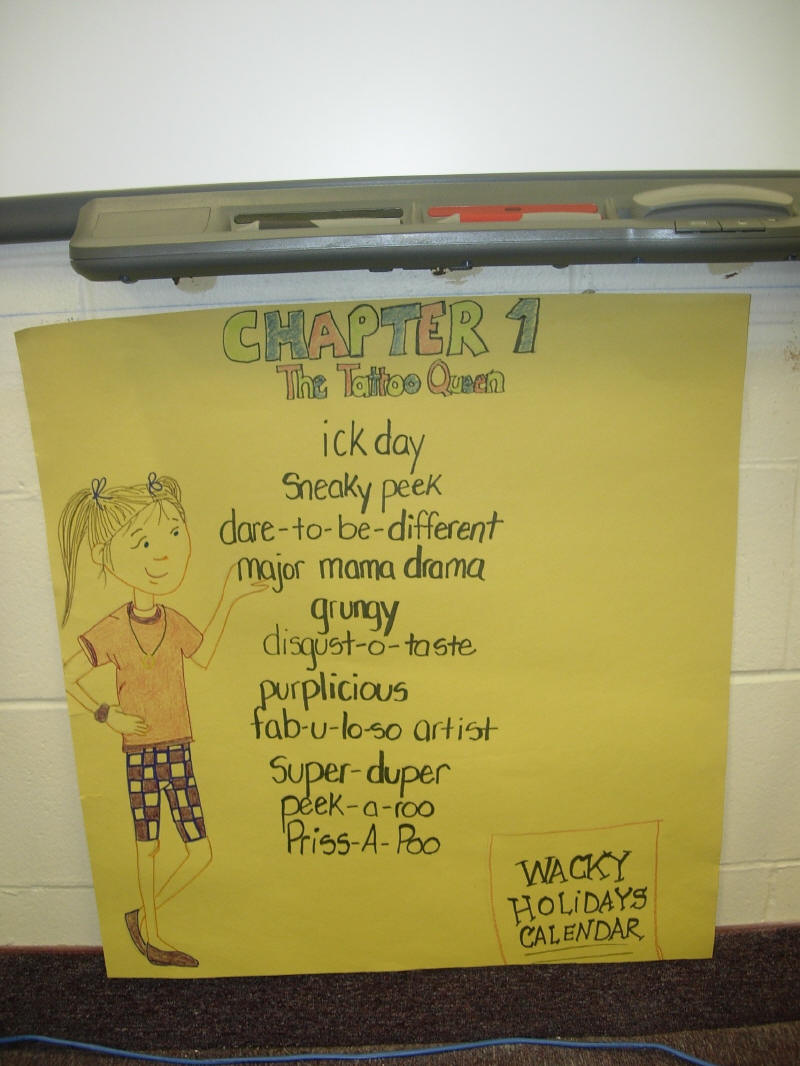 CHAPTER 1
The Tattoo Queen
ick day
Sneaky peek
dare-to-be-different
major mama drama
grungy
disgust-o-taste
purplicious
fab-u-lo-so artist
super-duper
peek-a-roo
Priss-A-Poo
WACKY
HOLiDAYS
CALENDAR